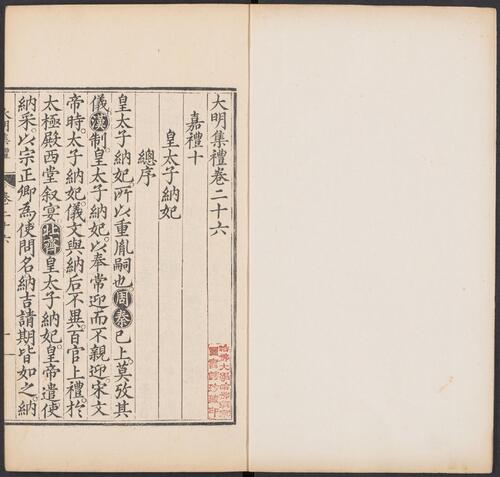 大明集禮卷二十六
嘉禮十
皇太子納妃
總序
皇太子納妃所以重胤嗣也周秦已上莫攷其
儀漢制皇太子納妃以奉常迎而不親迎宋文
帝時太子納妃儀文與納后不異百官上禮於
太極殿西堂叙宴北齊皇太子納妃皇帝遣使
納采以宗正卿為使問名納吉請期皆如之納
大明集禮 卷二十六 一